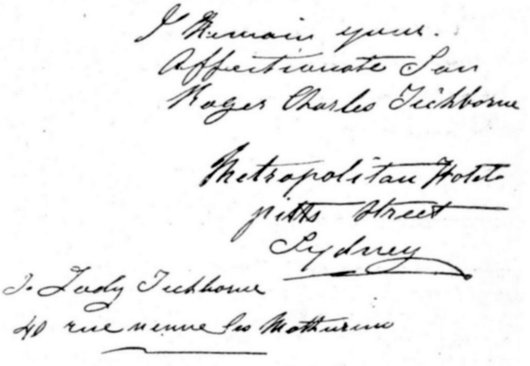 I Remain your.
Affectionate Son
Roger Charles Tichborne
Metropolitan Hotel
pitts Street
Sydney
To Lady Tichborne
40 rue les Mathurins